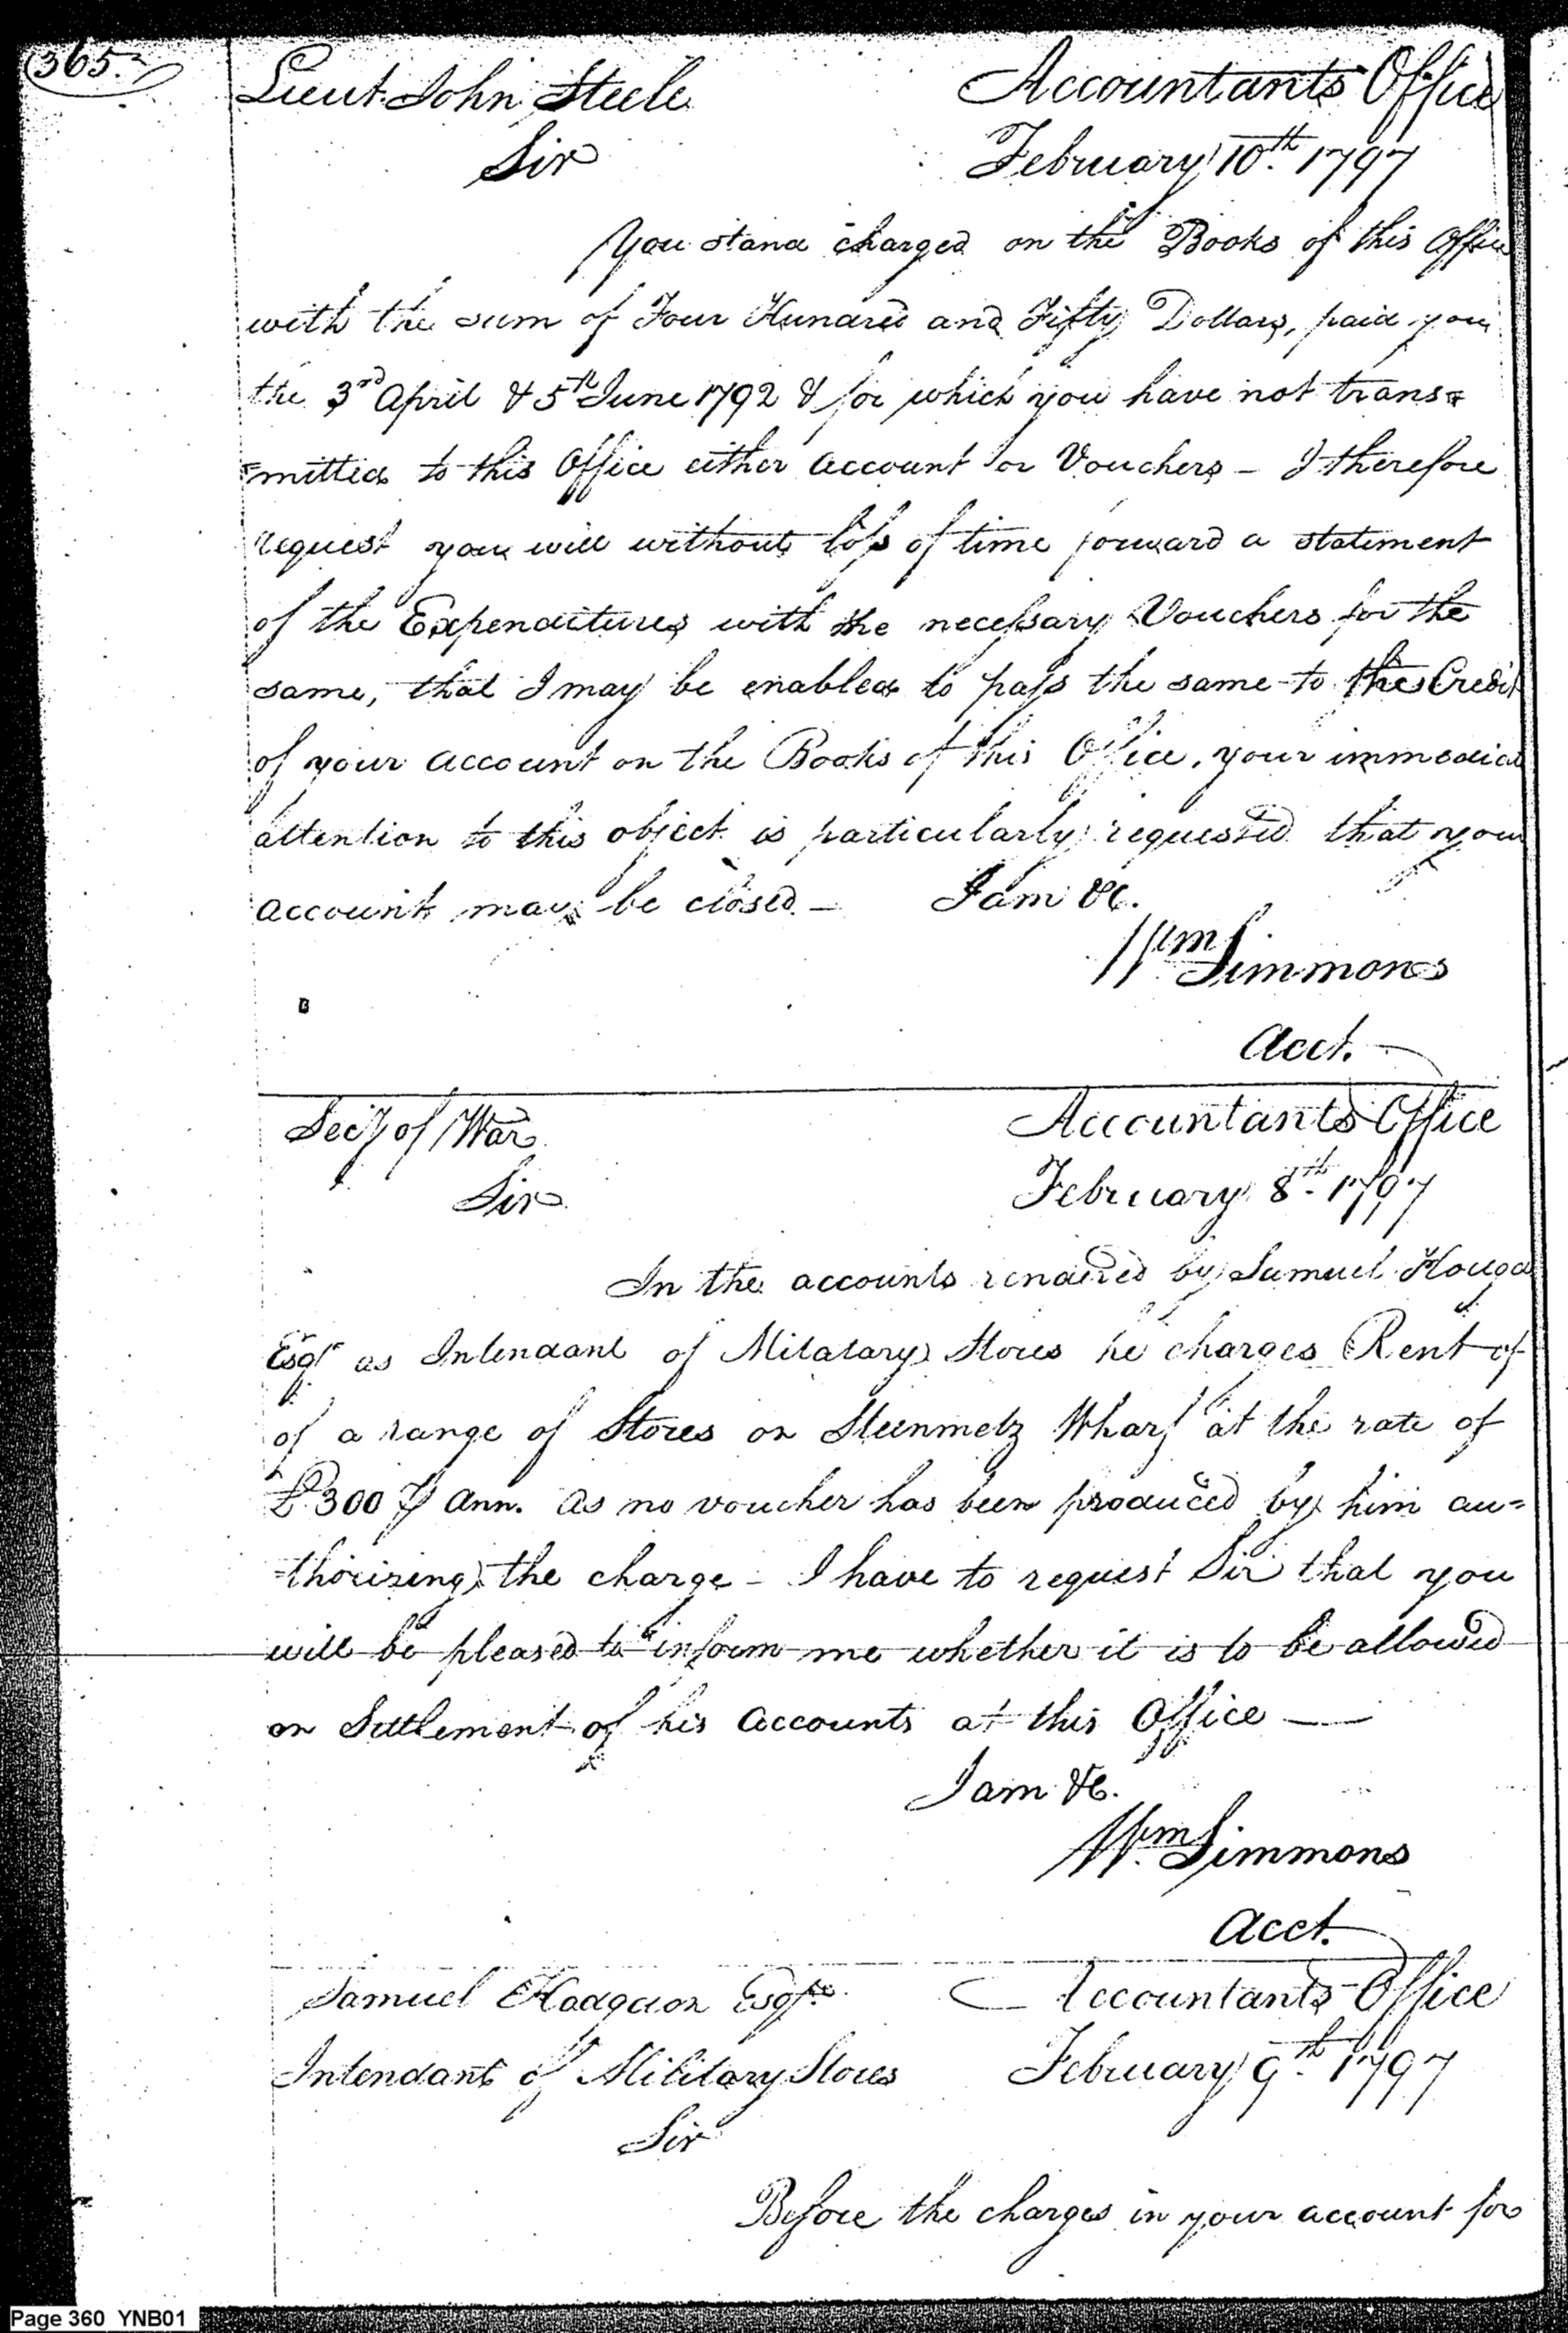 365.
Lieut. John Steele
Accountants Office
Sir
February 10th. 1797
You stand charged on the Books of this Office
with the sum of Four Hundred and Fifty Dollars, paid you
the 3rd April & 5th June 1792 & for which you have not trans=
=mitted to this Office either account or Vouchers – I therefore
request you will without loss of time forward a statement
of the Expenditures with the necessary Vouchers for the
same, that I may be enabled to pass the same to the Credit
of your account on the Books of this Office, your immediate
attention to this object is particularly requested that your
account may be closed. –
I am &c.
Wm Simmons
Acct.
Secy of War
Accountants Office
Sir
February 8th. 1797
In the accounts rendered by Samuel
Esqr as Intendant of Militatary Stores he charges Rent of
of a range of Stores on Steinmetz Wharf at the rate of
£300 ⅌ Ann. as no voucher has been produced by him au=
=thorizing the charge – I have to request Sir that you
will be pleased to inform me whether it is to be allowed
on Settlement of his Accounts at this Office —
I am &c.
Wm. Simmons
Acct.
Samuel Hodgdon Esqre.
Accountants Office
Intendant of Military Stores
February 9th. 1797
Sir
Before the charges in your account for
Page 360 YNB01